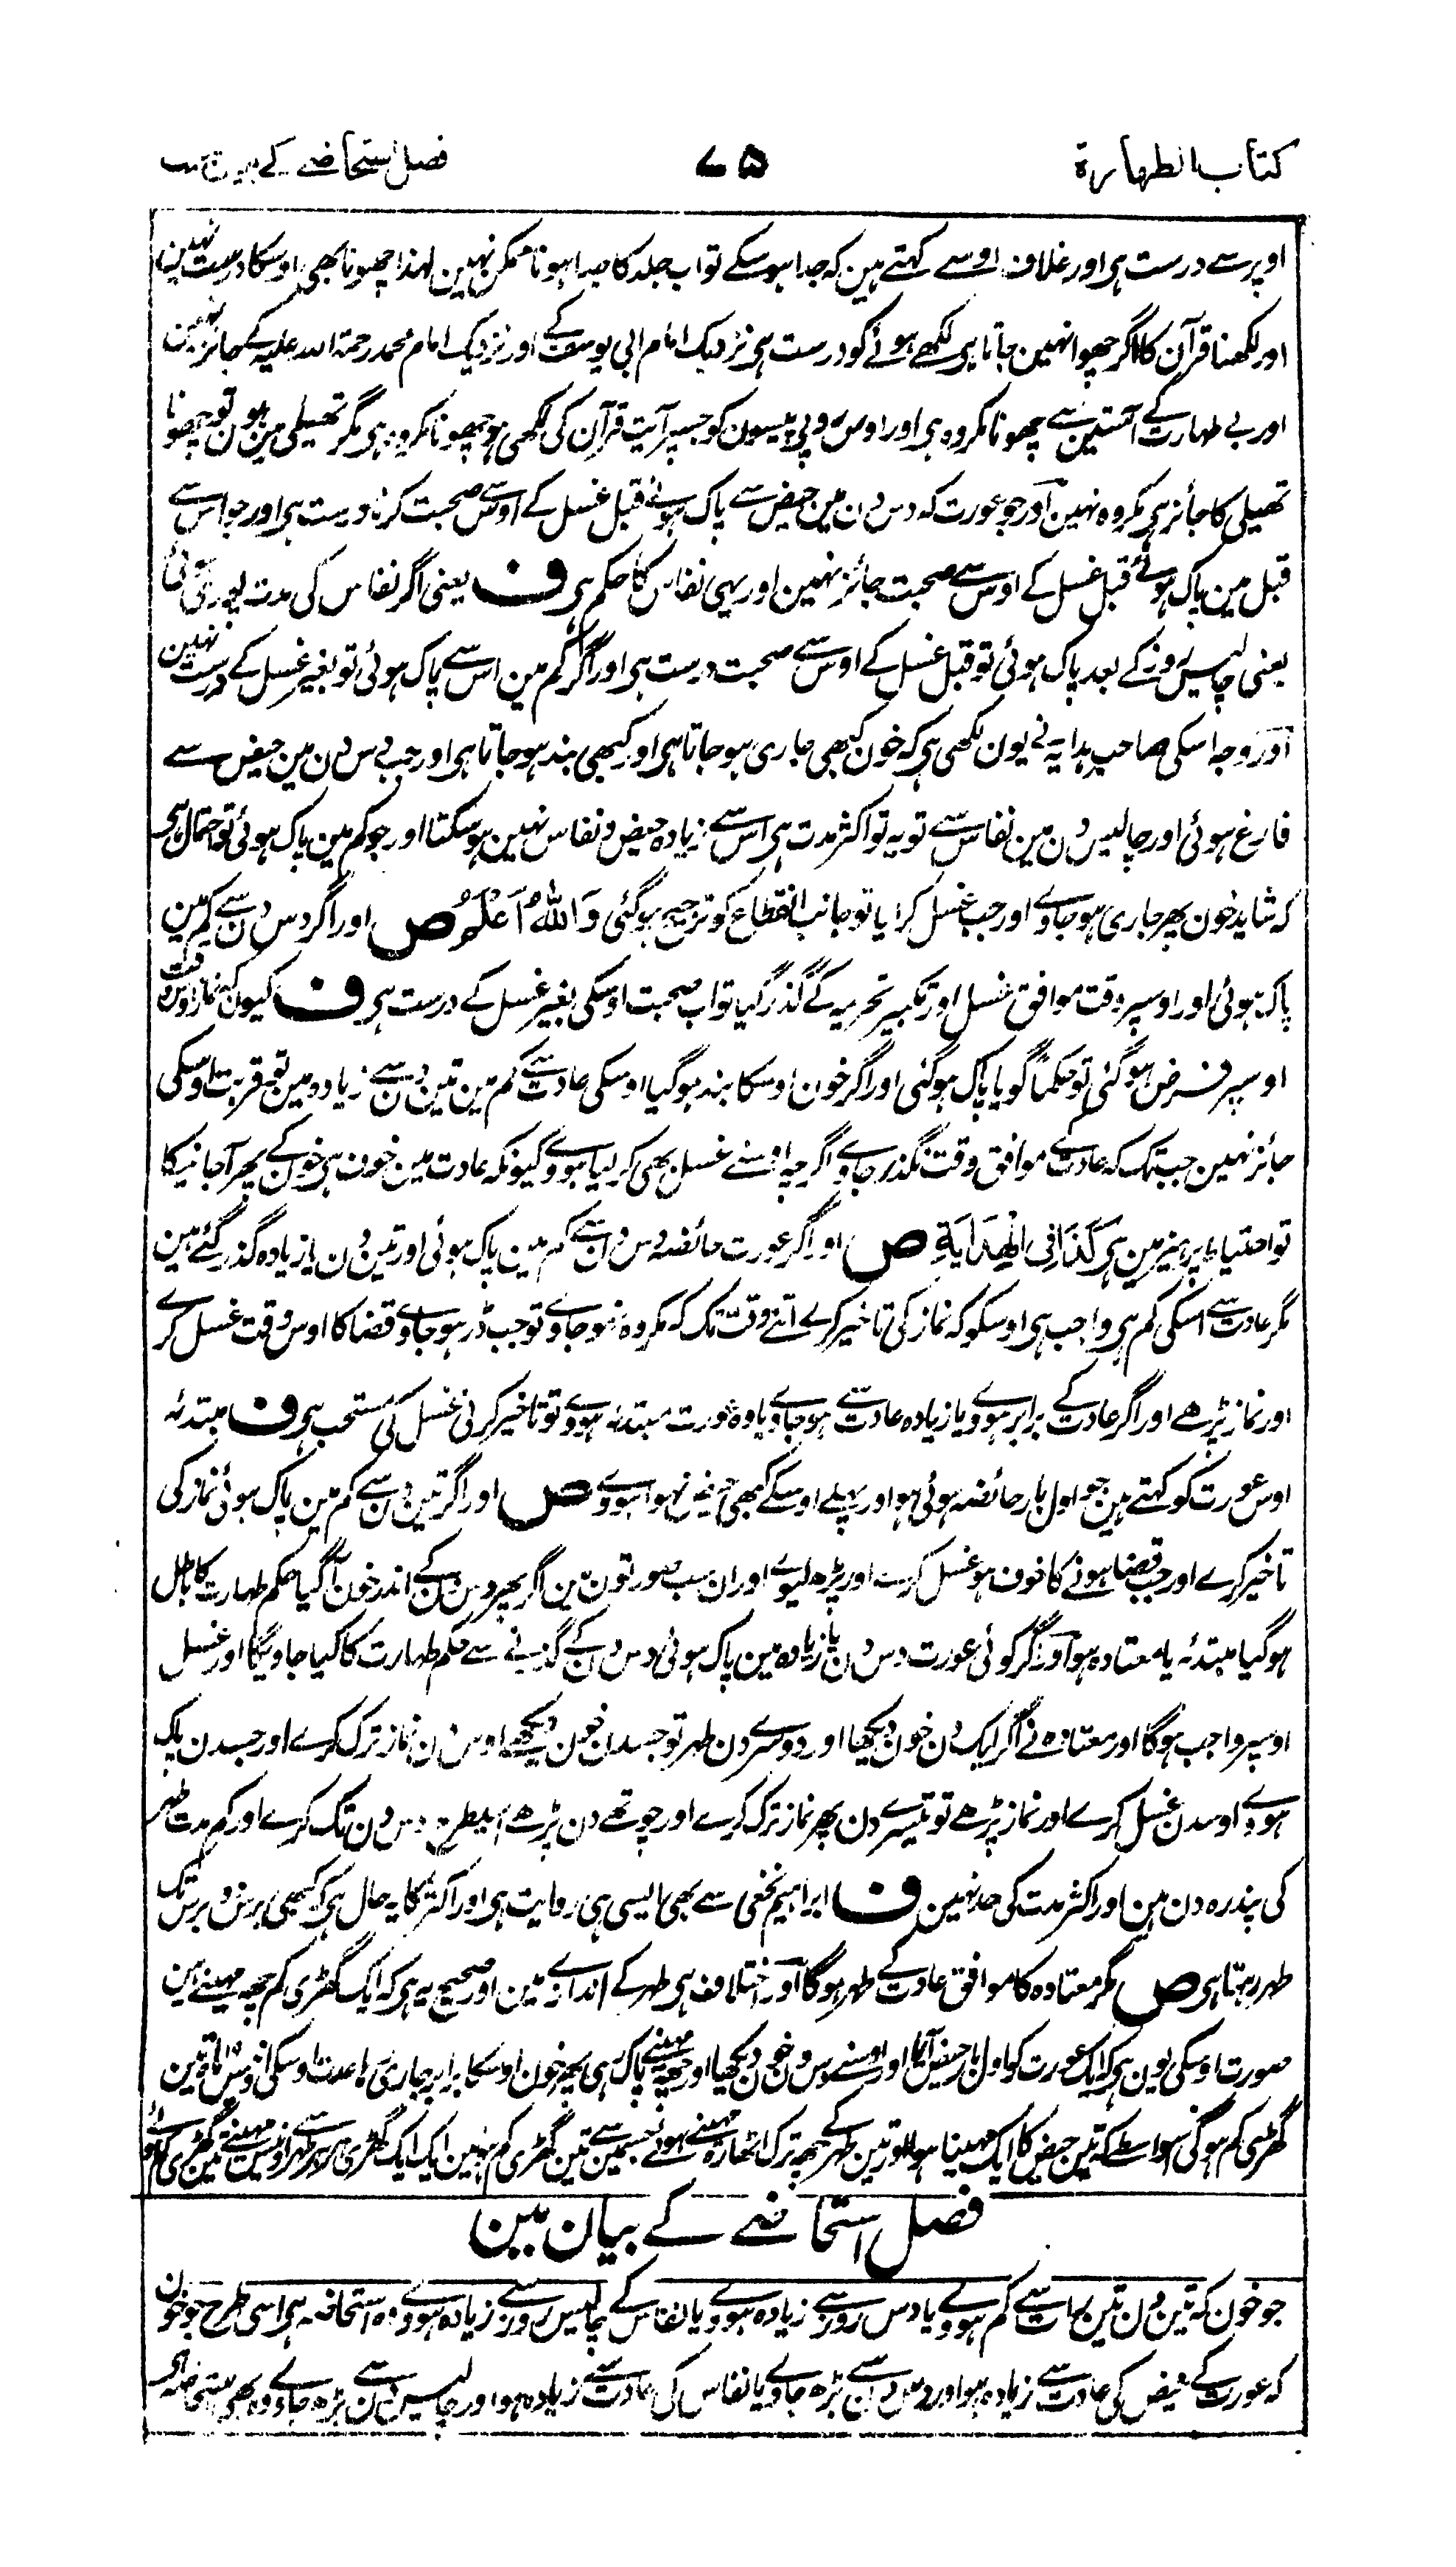 کتاب الطهارة
۷۵
فصل استحاضے کے بیان مین
اوپر سے درست ہی اور غلاف اوسے کہتے ہین کہ جدا ہوسکے تواب جلد کا جدا ہونا ممکن نہین لہذا چھونا بھی اوسکا درست نہین
اور لکھنا قرآن کا اگر چھوا نہین جاتا ہی لکھے ہوئے کو درست ہی نزدیک امام ابی یوسف کے اور نزدیک امام محمد رحمة الله علیہ کے جائز نہین
اور بے طہارت کے آستین سے چھونا مکروہ ہی اور اوس روپی پیسون کو جسپر آیت قرآن کی لکھی ہو چھونا مکروہ ہی مگر تھیلی مین ہون تو چھونا
تھیلی کا جائز ہی مکروہ نہین اور جو عورت کہ دس دن مین حیض سے پاک ہوئے قبل غسل کے اوس سے صحبت کرنا درست ہی اور جو اس سے
قبل مین پاک ہوئے قبل غسل کے اوس سے صحبت جائز نہین اور یہی نفاس کا حکم ہی ف یعنی اگر نفاس کی مدت پوری ہوئی
یعنی چالیس روز کے بعد پاک ہوئی تو قبل غسل کے اوس سے صحبت درست ہی اور اگر کم مین اس سے پاک ہوئی تو بغیر غسل کے درست نہین
اور وجہ اسکی صاحب ہدایہ نے یون لکھی ہی کہ خون کبھی جاری ہو جاتا ہی اور کبھی بند ہو جاتا ہی اور جب دس دن مین حیض سے
فارغ ہوئی اور چالیس دن مین نفاس سے تو یہ تو اکثر مدت ہی اس سے زیادہ حیض و نفاس نہین ہو سکتا اور جو کم مین پاک ہوئی تو احتمال ہی
کہ شاید خون پھر جاری ہو جاوے اور جب غسل کر لیا تو جانب انقطاع کو ترجیح ہو گئی وَاللّٰهُ اَعْلَمُ ص اور اگر دس دن سے کم مین
پاک ہوئی اور اوسپر وقت موافق غسل اور تکبیر تحریمہ کے گذر گیا تو اب صحبت اوسکی بغیر غسل کے درست ہی ف کیونکہ نماز اوس وقت کی
اوسپر فرض ہو گئی تو حکماً گویا پاک ہو گئی اور اگر خون اوسکا بند ہو گیا اوسکی عادت سے کم مین تین دن سے زیادہ مین تو قربت اوسکی
جائز نہین جب تک کہ عادت کے موافق وقت نگذر جاوے اگرچہ اوسنے غسل بھی کر لیا ہووے کیونکہ عادت مین خون ہی خون کے پھر آجانیکا
تو احتیاط پرہیز مین ہی کَذَا فِی الْهِدَایَةِ ص اور اگر عورت حائضہ دس دن سے کم مین پاک ہوئی اور تین دن یا زیادہ گذر گئے ہین
مگر عادت سے اسکی کم ہی واجب ہی اوسکو کہ نماز کی تاخیر کرے اتنے وقت تک کہ مکروہ نہو جاوے تو جب ڈر ہو جاوے قضا کا اوس وقت غسل کرے
اور نماز پڑھے اور اگر عادت کے برابر ہووے یا زیادہ عادت سے ہو جاوے یا وہ عورت مبتدئہ ہووے تو تاخیر کرنی غسل کی مستحب ہی ف مبتدئہ
اوس عورت کو کہتے ہین جو اول بار حائضہ ہوئی ہو اور پہلے اوسکے کبھی حیض نہوا ہووے ص اور اگر تین دن سے کم مین پاک ہوئی نماز کی
تاخیر کرے اور جب قضا ہونے کا خوف ہو غسل کرے اور پڑھ لیوے اور ان سب صورتون مین اگر پھر دس دن کے اندر خون آگیا حکم طہارت کا باطل
ہو گیا مبتدئہ یا معتادہ ہو اور اگر کوئی عورت دس دن یا زیادہ مین پاک ہوئی دس دن کے گذرنے سے حکم طہارت کا کیا جاویگا اور غسل
اوسپر واجب ہوگا اور معتادہ نے اگر ایک دن خون دیکھا اور دوسرے دن طہر تو جسدن خون دیکھے اوس دن نماز ترک کرے اور جسدن پاک
ہووے اوسدن غسل کرے اور نماز پڑھے تو تیسرے دن پھر نماز ترک کرے اور چوتھے دن پڑھے اسیطرح دس دن تک کرے اور کم مدت طہر
کی پندرہ دن ہین اور اکثر مدت کی حد نہین ف ابراہیم نخعی سے بھی ایسی ہی روایت ہی اور اکثر کا یہ حال ہی کہ کبھی برس دو برس تک
طہر رہتا ہی ص مگر معتادہ کا موافق عادت کے طہر ہوگا اور اختلاف ہی طہر کے اندازے مین اور صحیح یہ ہی کہ ایک گھڑی کم چھ مہینے ہین
صورت اوسکی یون ہی کہ ایک عورت کو اول بار حیض آیا اور اوسنے دس دن خون دیکھا اور چھ مہینے پاک رہی پھر خون اوسکا برابر جاری رہا عدت اوسکی اونیس ماہ تین
گھڑی کم ہوگی اسواسطے کہ تین حیض کا ایک مہینا ہوا اور تین طہر کے چھ ترک اٹھارہ مہینے ہوئے جسمین سے تین گھڑی کم ہین ایک ایک گھڑی ہر طہر سے اونیس مہینے تین گھڑی کم ہوئے
فصل استحاضے کے بیان مین
جو خون کہ تین دن تین رات سے کم ہووے یا دس روز سے زیادہ ہووے یا نفاس کے چالیس روز سے زیادہ ہووے وہ استحاضہ ہی اسی طرح جو خون
کہ عورت کے حیض کی عادت سے زیادہ ہو اور دس دن سے بڑھ جاوے یا نفاس کی عادت سے زیادہ ہو اور چالیس دن سے بڑھ جاوے وہ بھی استحاضہ ہی